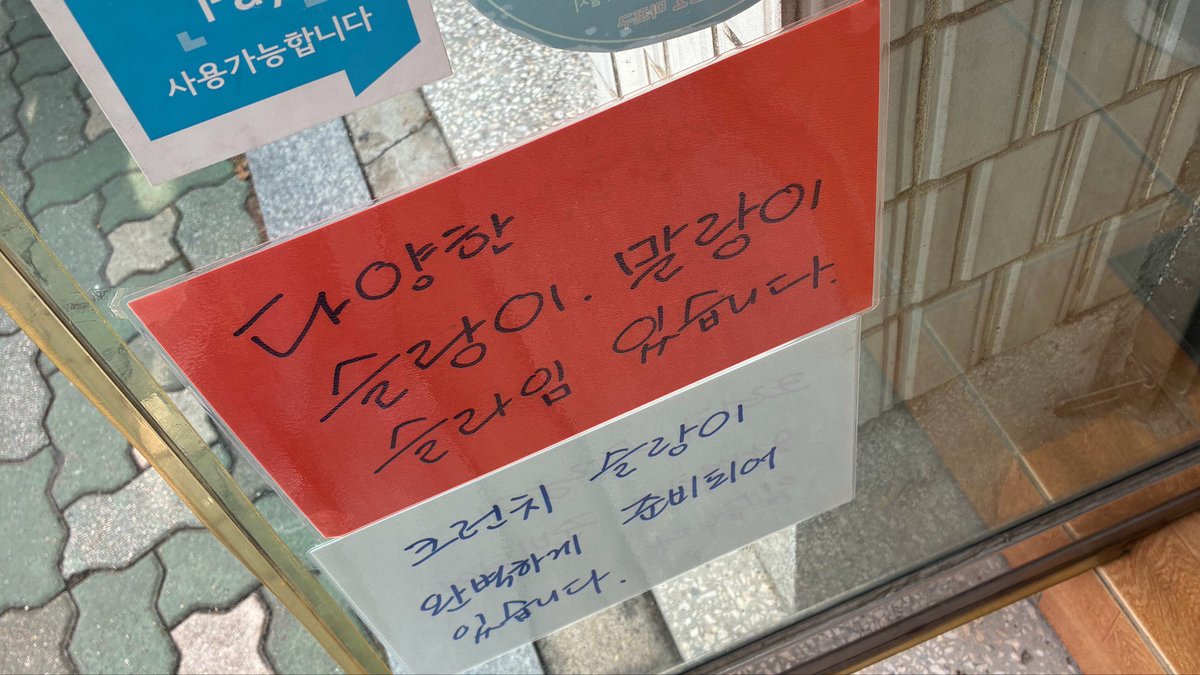 Pay
사용가능합니다
다양한
슬랑이. 말랑이
슬라임 있습니다.
크런치 슬랑이
완벽하게 준비되어
있습니다.